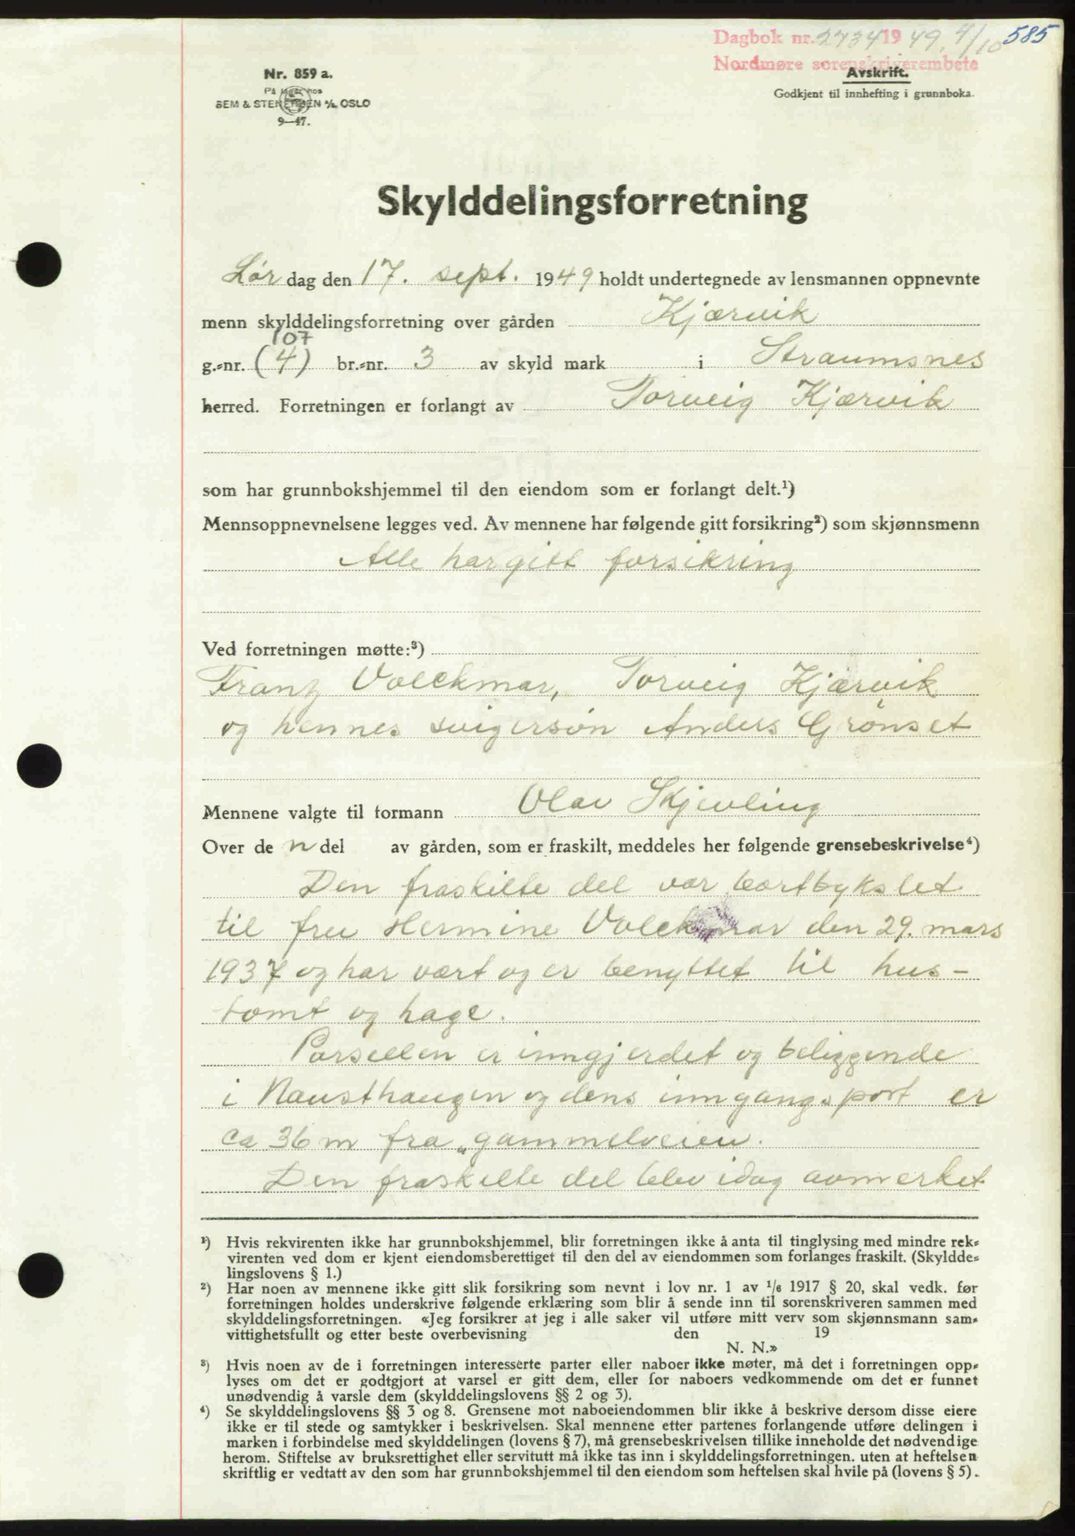 Dagbok nr. 2734 1949, 4/10 585
Nordmøre sorenskriverembete
Nr. 859 a.
På lager hos
SEM & STENERSEN A/S, OSLO
9—47.
Avskrift.
Godkjent til innhefting i grunnboka.
Skylddelingsforretning
Lør dag den 17. sept. 1949 holdt undertegnede av lensmannen oppnevnte
menn skylddelingsforretning over gården Kjærvik
107
g.-nr. (4) br.-nr. 3 av skyld mark i Straumsnes
herred. Forretningen er forlangt av Torveig Kjærvik
som har grunnbokshjemmel til den eiendom som er forlangt delt.¹)
Mennsoppnevnelsene legges ved. Av mennene har følgende gitt forsikring²) som skjønnsmenn
Alle har gitt forsikring
Ved forretningen møtte:³)
Franz Volckmar, Torveig Kjærvik
og hennes svigersøn Anders Grønset
Mennene valgte til formann Olav Skjevling
Over de n del av gården, som er fraskilt, meddeles her følgende grensebeskrivelse⁴)
Den fraskilte del var bortbykslet
til fru Hermine Volckmar den 29. mars
1937 og har vært og er benyttet til hus-
tomt og hage.
Parsellen er inngjerdet og beliggende
i Nausthaugen og dens inngangsport er
ca 36 m fra „gammelveien.
Den fraskilte del blev idag avmerket
¹) Hvis rekvirenten ikke har grunnbokshjemmel, blir forretningen ikke å anta til tinglysing med mindre rek-
virenten ved dom er kjent eiendomsberettiget til den del av eiendommen som forlanges fraskilt. (Skyldde-
lingslovens § 1.)
²) Har noen av mennene ikke gitt slik forsikring som nevnt i lov nr. 1 av ¹/₆ 1917 § 20, skal vedk. før
forretningen holdes underskrive følgende erklæring som blir å sende inn til sorenskriveren sammen med
skylddelingsforretningen. «Jeg forsikrer at jeg i alle saker vil utføre mitt verv som skjønnsmann sam-
vittighetsfullt og etter beste overbevisning den 19
N. N.»
³) Hvis noen av de i forretningen interesserte parter eller naboer ikke møter, må det i forretningen opp-
lyses om det er godtgjort at varsel er gitt dem, eller for naboers vedkommende om det er funnet
unødvendig å varsle dem (skylddelingslovens §§ 2 og 3).
⁴) Se skylddelingslovens §§ 3 og 8. Grensene mot naboeiendommen blir ikke å beskrive dersom disse eiere
ikke er til stede og samtykker i beskrivelsen. Skal mennene etter partenes forlangende utføre delingen i
marken i forbindelse med skylddelingen (lovens § 7), må grensebeskrivelsen tillike inneholde det nødvendige
herom. Stiftelse av bruksrettighet eller servitutt må ikke tas inn i skylddelingsforretningen. uten at heftelsen
skriftlig er vedtatt av den som har grunnbokshjemmel til den eiendom som heftelsen skal hvile på (lovens § 5).